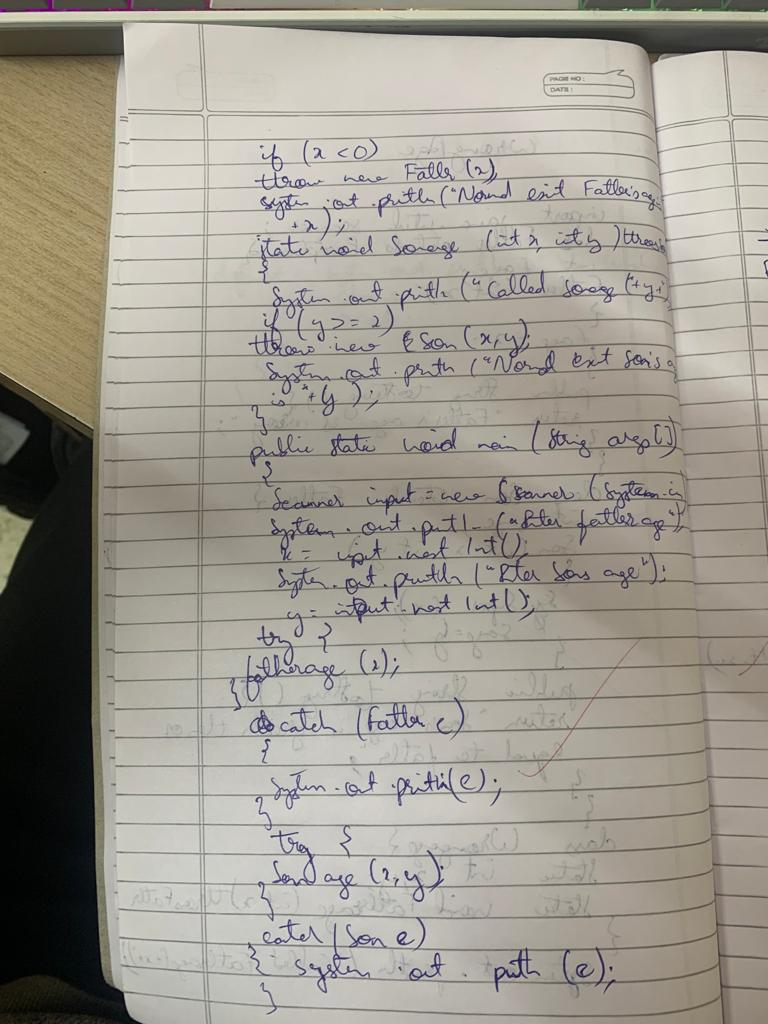 PAGE NO :
DATE :
if (x < 0)
throw new Father (x),
system .out .println ("Normal exit Father's age
+x) ;
static void Sonage (int x, int y ) throws
{
System .out .println ("Called Sonage ("+y+
if (y >= 2)
throw new Son (x,y);
System .out . println ("Normal exit Son's a
is "+y );
}
public static void main (String args[])
{
Scanner input = new Scanner (System.in
System . out . println ("Enter father age")
x = input .next Int();
System .out .println ("Enter Sons age");
y = input .next Int();
try {
fatherage (x);
}
catch (Father e)
{
System .out .println(e);
}
try {
Son age (x,y);
}
catch (Son e)
{ system .out . println (e);
}